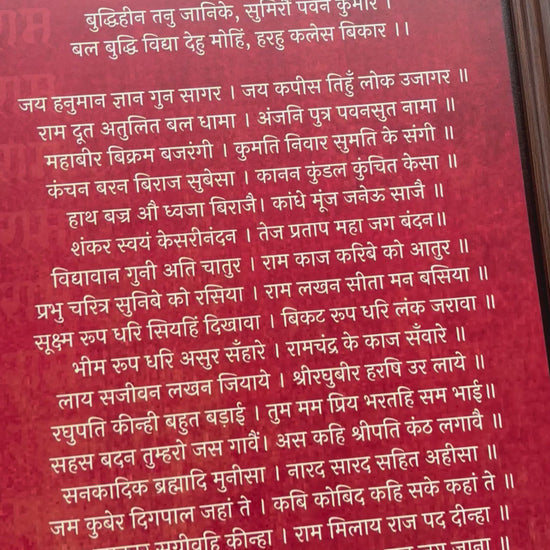 बुद्धिहीन तनु जानिके, सुमिरौं पवन कुमार ।
बल बुद्धि विद्या देहु मोहिं, हरहु कलेस बिकार ।।
जय हनुमान ज्ञान गुन सागर । जय कपीस तिहुँ लोक उजागर ॥
राम दूत अतुलित बल धामा । अंजनि पुत्र पवनसुत नामा ॥
महाबीर बिक्रम बजरंगी । कुमति निवार सुमति के संगी ॥
कंचन बरन बिराज सुबेसा । कानन कुंडल कुंचित केसा ॥
हाथ बज्र औ ध्वजा बिराजै। कांधे मूंज जनेऊ साजै ॥
शंकर स्वयं केसरीनंदन । तेज प्रताप महा जग बंदन॥
विद्यावान गुनी अति चातुर । राम काज करिबे को आतुर ॥
प्रभु चरित्र सुनिबे को रसिया । राम लखन सीता मन बसिया ॥
सूक्ष्म रूप धरि सियहिं दिखावा । बिकट रूप धरि लंक जरावा ॥
भीम रूप धरि असुर सँहारे । रामचंद्र के काज सँवारे ॥
लाय सजीवन लखन जियाये । श्रीरघुबीर हरषि उर लाये ॥
रघुपति कीन्ही बहुत बड़ाई । तुम मम प्रिय भरतहि सम भाई॥
सहस बदन तुम्हरो जस गावैं। अस कहि श्रीपति कंठ लगावै ॥
सनकादिक ब्रह्मादि मुनीसा । नारद सारद सहित अहीसा ॥
जम कुबेर दिगपाल जहां ते । कबि कोबिद कहि सके कहां ते ॥
सुग्रीवहि कीन्हा । राम मिलाय राज पद दीन्हा ॥